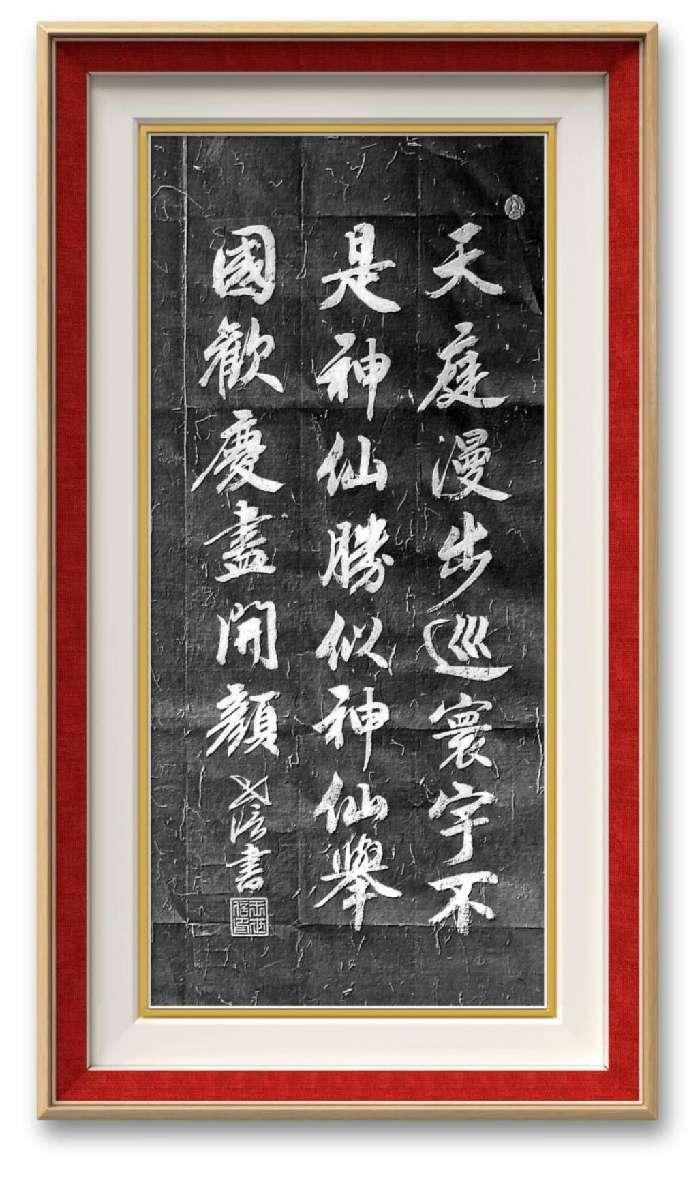 天庭漫步巡寰宇不
是神仙勝似神仙舉
國歡慶盡開顏
書